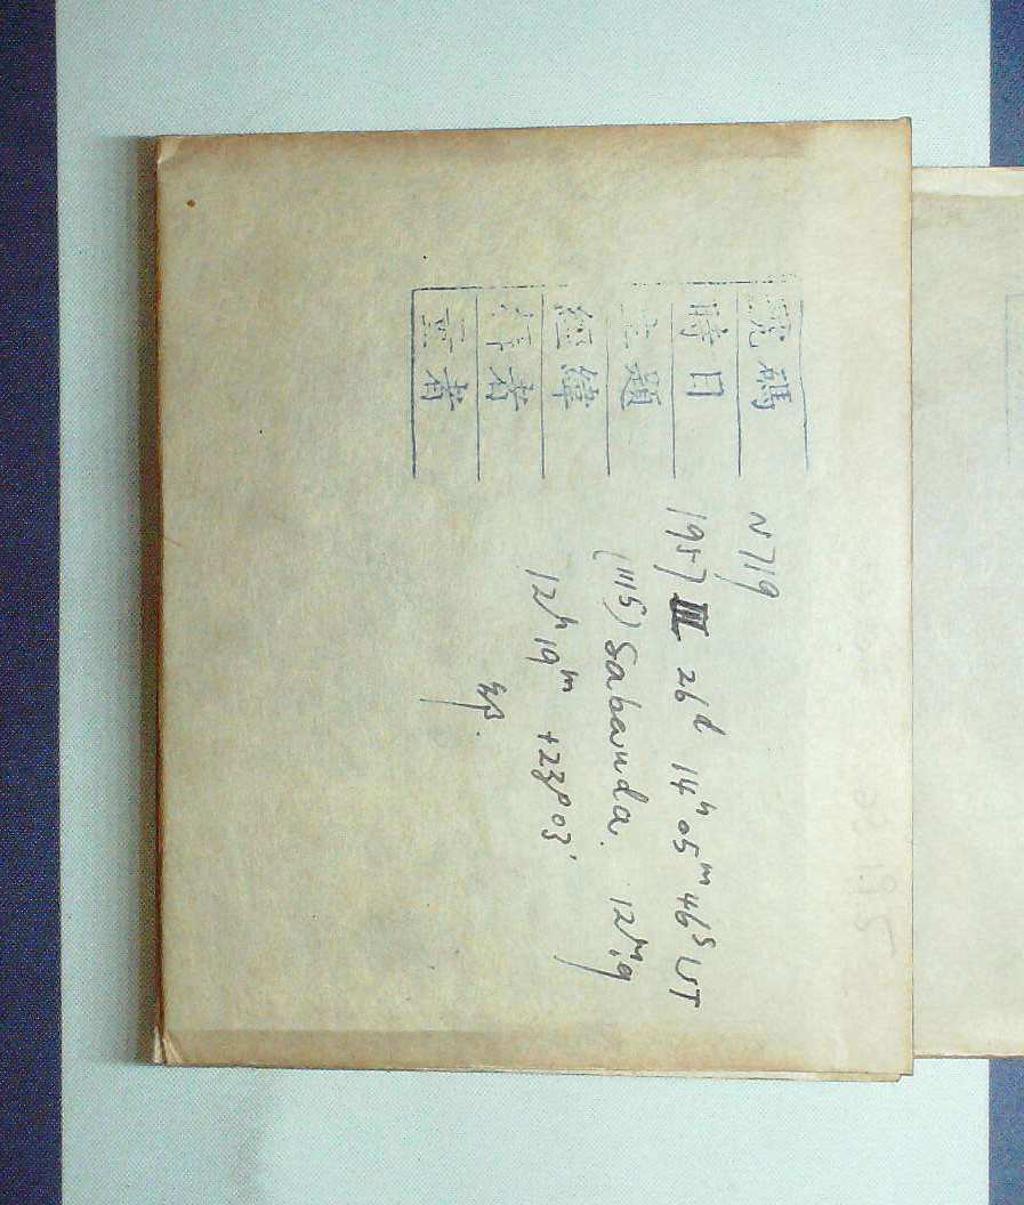 號碼 N719
時日 1957 III 26ᵈ 14ʰ 05ᵐ 46ˢ UT
題 (1115) Sabauda. 12ᵐ.9
經緯 12ʰ 19ᵐ +23° 03'
者
者